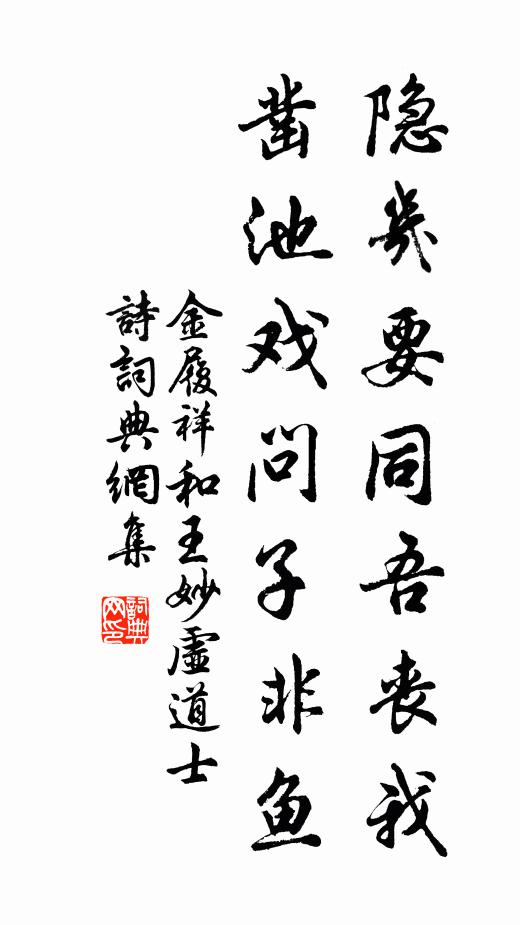 隐几要同吾丧我
凿池戏问子非鱼
金履祥和王妙虚道士
詩詞典網集
詞典网印